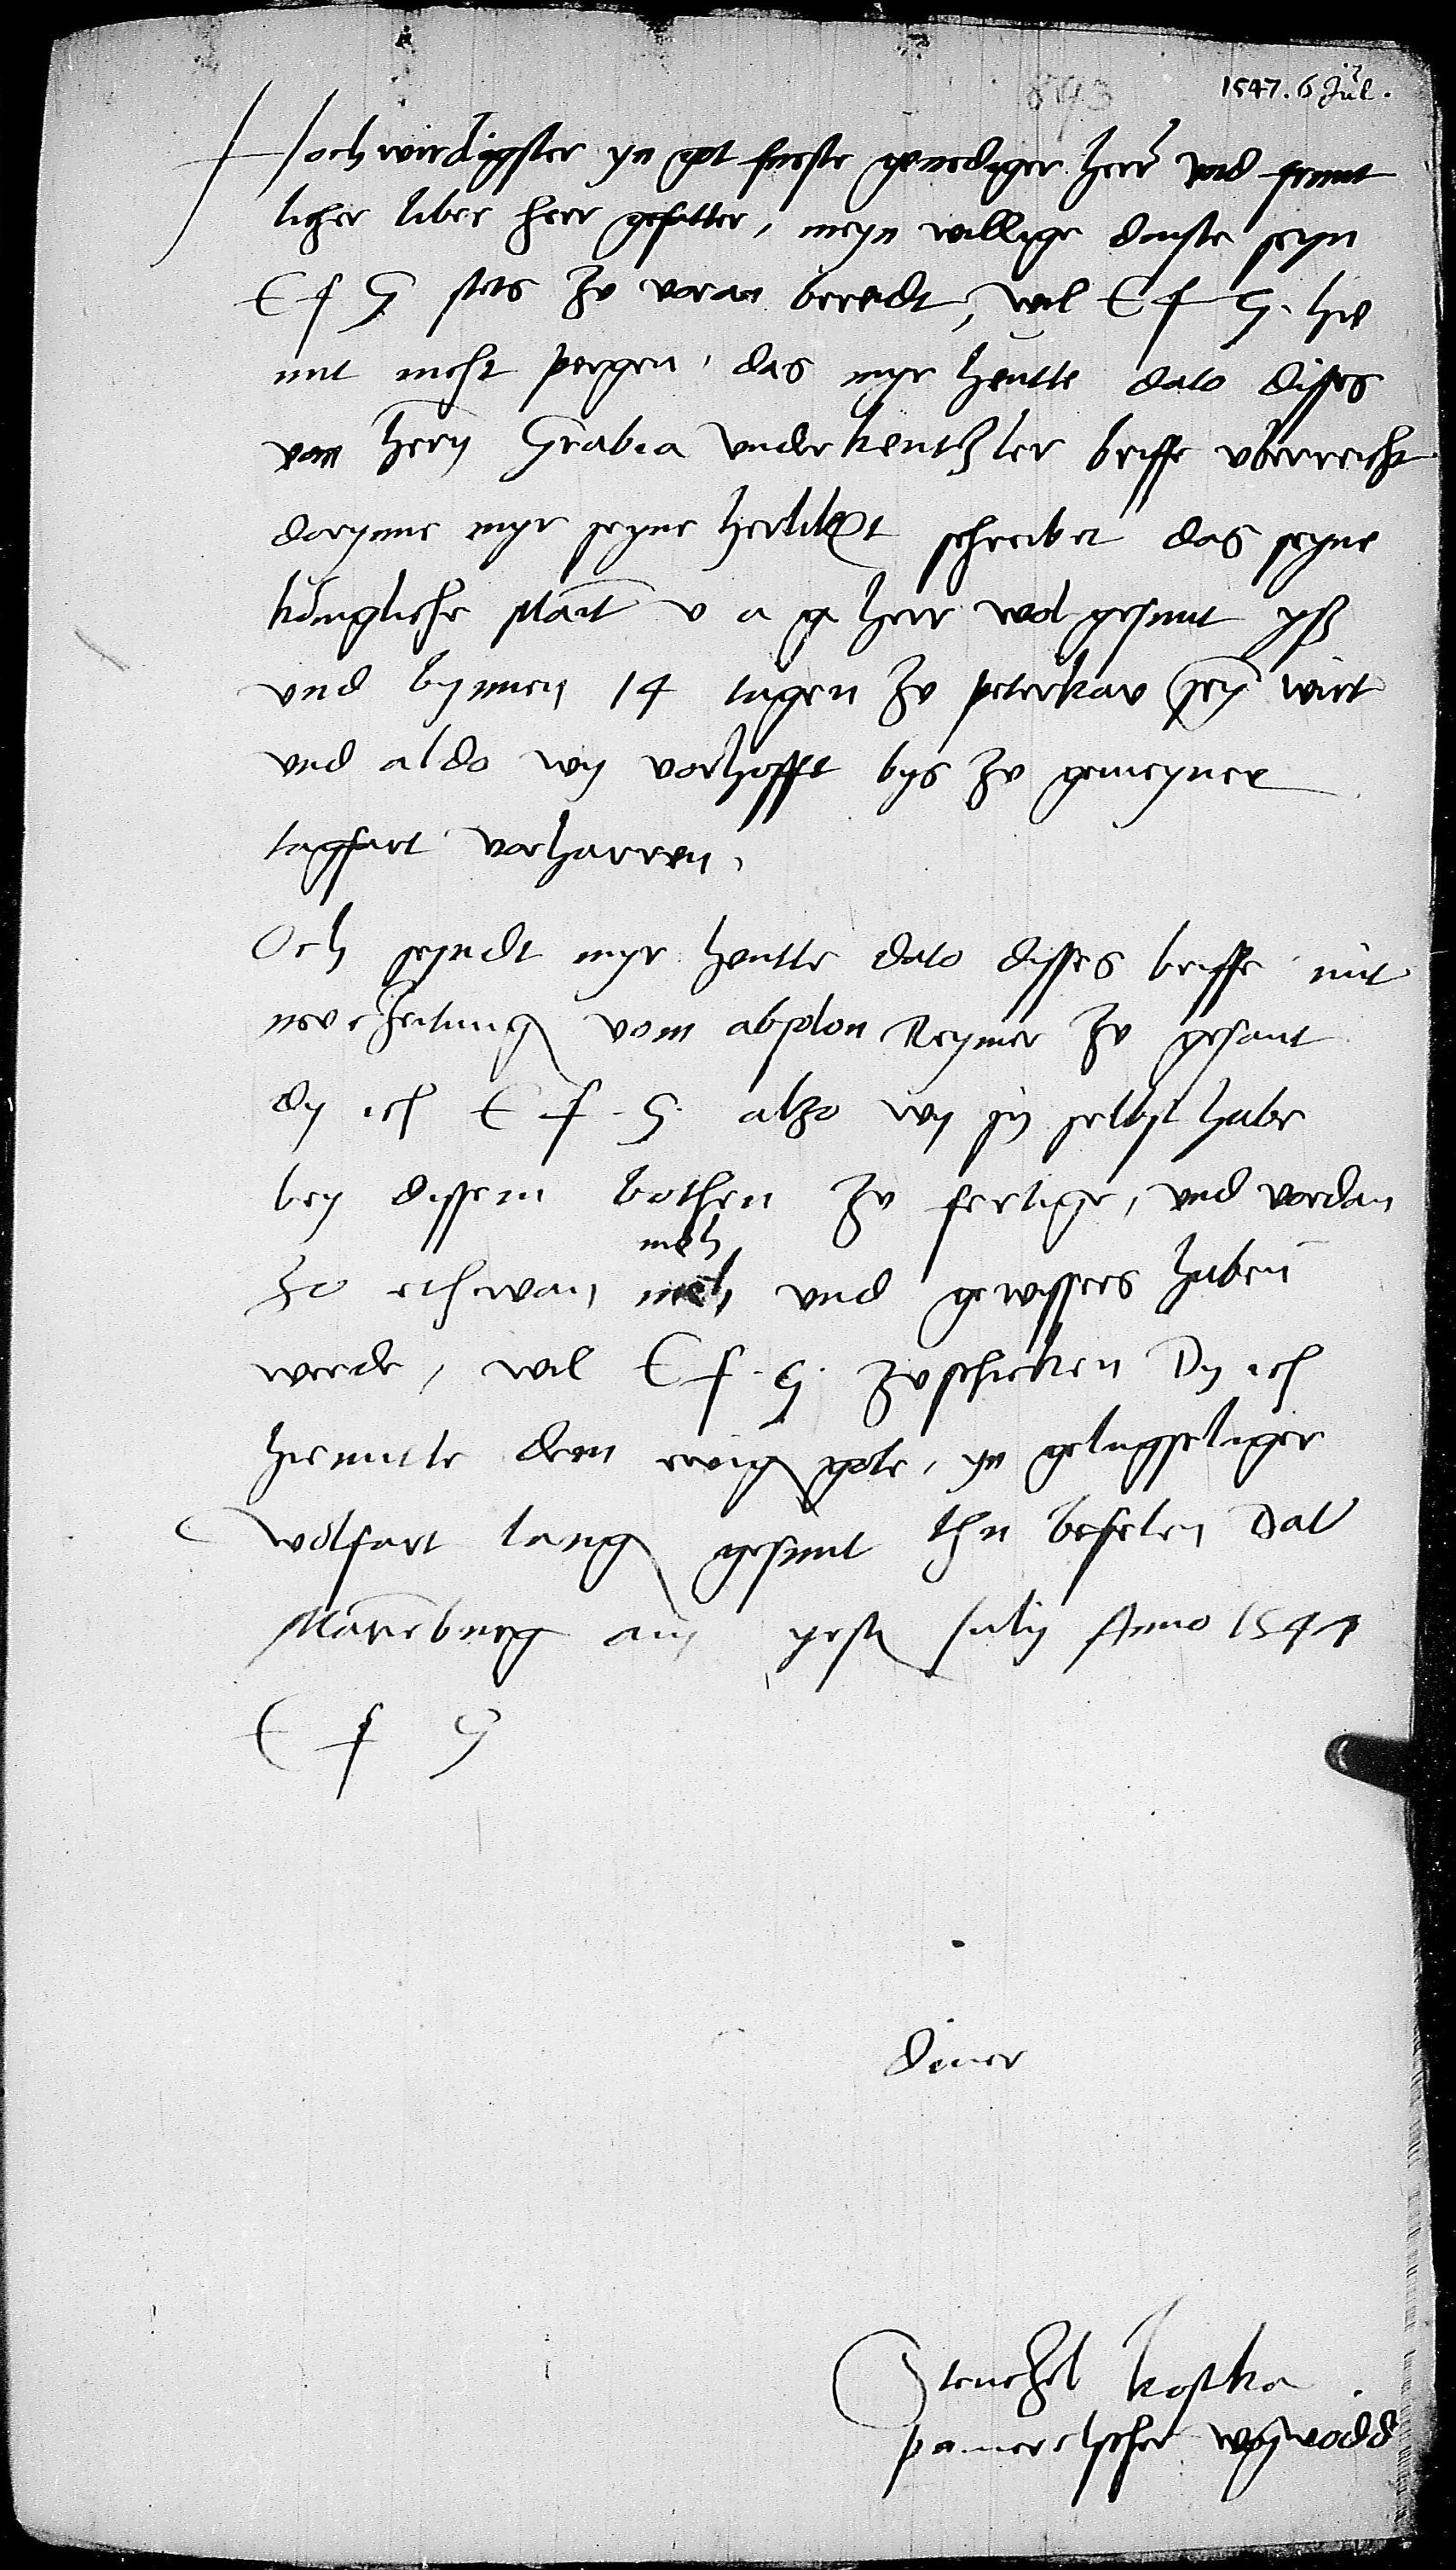 1547. 6 Jul.
893
Hochwirdigster yn got furste genediger herr vnd frunt
licher liber herr gefatter, meyn willige dinste seyn
E f G stets zv voran bereidt, wil E f G. hie
mit nicht pergen, das myr heutte dato disses
vom hern Grabia vnderkentzler briffe vberreicht
dorynne myr seyne herlikeit schreibet das seyne
königliche Mait v a g herr wol gesunt yst
vnd bynnen 14 tagen zv peterkav seyn wirt
vnd aldo wy vorhofft bys zv gemeyner
tagfart vorharren.
Och seyndt myr heutte dato disses briffe mit
neve zeitung vom absolon Reymer zv gesant
dy ich E f. G. alzo wy sy selbst habe
bey dissem bothen zv fertige, vnd vordan
meh
zo ethwan vnd gewisses haben
werde, wil E f. G. zvschicken Dy ich
hiemitte dem ewig gote, yn gelugseliger
wolfart lang gesunt thu befelen Dat
Marienburg am Julij Anno 1547
E f G
diner
Stenczel kostka
pomerelscher woywodd